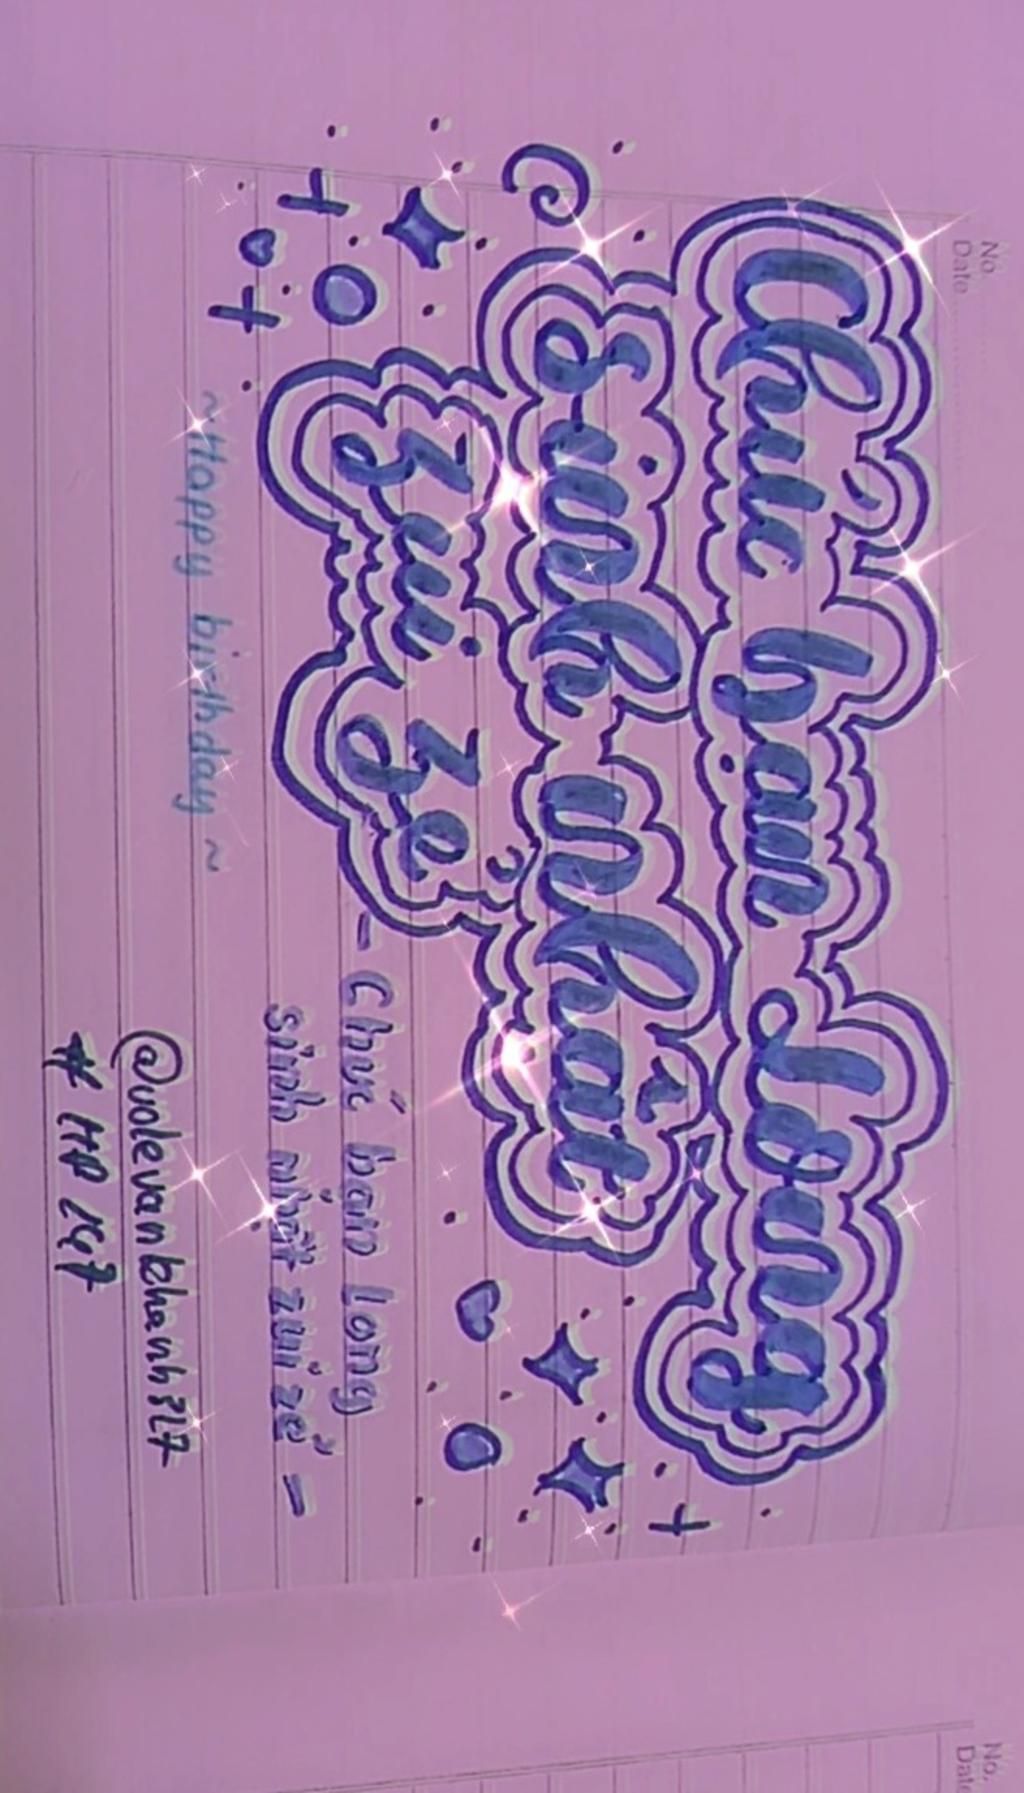 No.
Date
Chúc bạn Long
Sinh nhật
Zui Zẻ
- Chúc bạn Long
sinh nhật zui zẻ -
~Happy birthday ~
@volevankhanh327
No.
Date